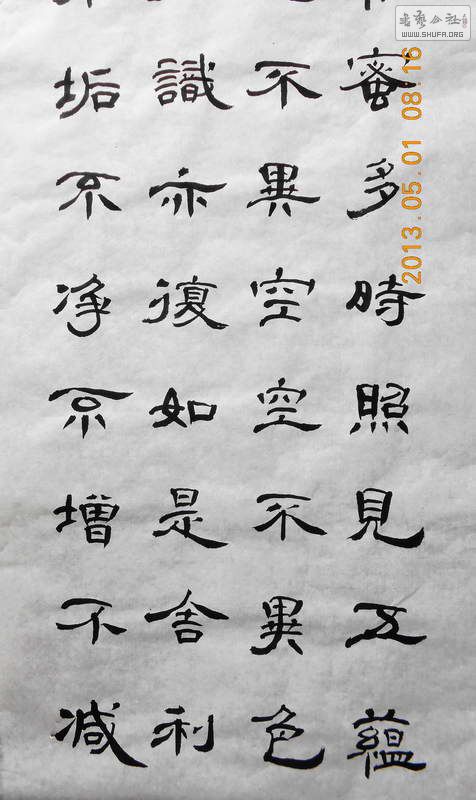 蜜多時照見五蘊
不異空空不異色
識亦復如是舍利
垢不净不增不減
书艺公社
WWW.SHUFA.ORG
2013.05.01 08:16